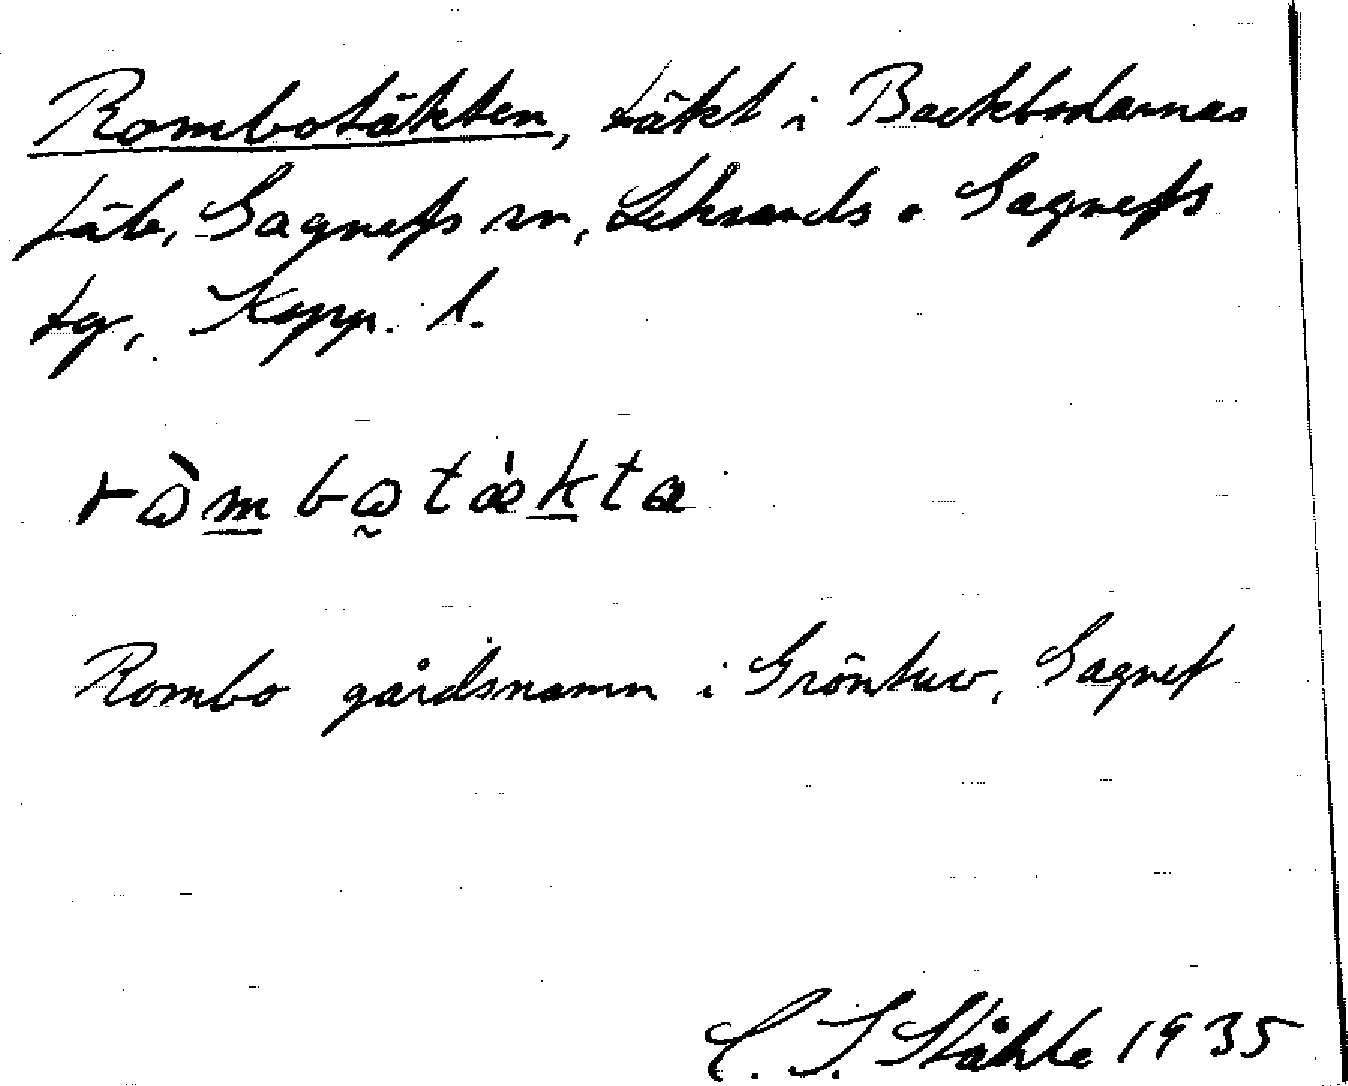 Rombotäkten, täkt i Backbodarnas
fäb, Gagnefs sn, Leksands o Gagnefs
tg, Kopp. l.
ròmbo̰tæ̀kta
Rombo gårdsnamn i Gröntuv, Gagnef
C. I. Ståhle 1935